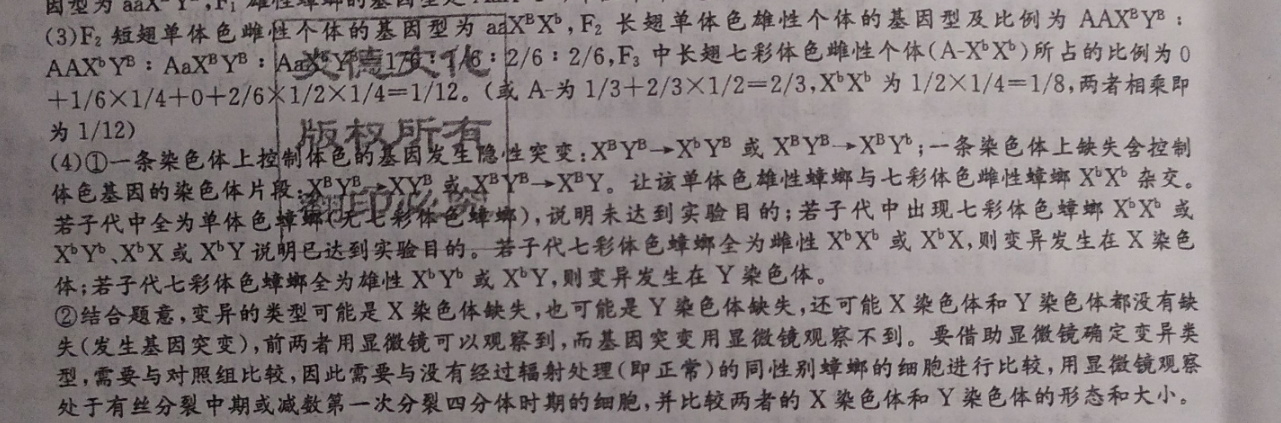 因型为 aaXᵇYᴮ,F₁ 雄性蟑螂的基因型是
(3)F₂ 短翅单体色雌性个体的基因型为 aaXᴮXᵇ,F₂ 长翅单体色雄性个体的基因型及比例为 AAXᴮYᴮ:
AAXᵇYᴮ:AaXᴮYᴮ:AaXᵇYᴮ=1/6:1/6:2/6:2/6,F₃ 中长翅七彩体色雌性个体(A-XᵇXᵇ)所占的比例为 0
+1/6×1/4+0+2/6×1/2×1/4=1/12。(或 A-为 1/3+2/3×1/2=2/3,XᵇXᵇ 为 1/2×1/4=1/8,两者相乘即
为 1/12)
(4)①一条染色体上控制体色的基因发生隐性突变:XᴮYᴮ→XᵇYᴮ 或 XᴮYᴮ→XᴮYᵇ;一条染色体上缺失含控制
体色基因的染色体片段:XᴮYᴮ→XYᴮ 或 XᴮYᴮ→XᴮY。让该单体色雄性蟑螂与七彩体色雌性蟑螂 XᵇXᵇ 杂交。
若子代中全为单体色蟑螂(无七彩体色蟑螂),说明未达到实验目的;若子代中出现七彩体色蟑螂 XᵇXᵇ 或
XᵇYᵇ、XᵇX 或 XᵇY 说明已达到实验目的。若子代七彩体色蟑螂全为雌性 XᵇXᵇ 或 XᵇX,则变异发生在 X 染色
体;若子代七彩体色蟑螂全为雄性 XᵇYᵇ 或 XᵇY,则变异发生在 Y 染色体。
②结合题意,变异的类型可能是 X 染色体缺失,也可能是 Y 染色体缺失,还可能 X 染色体和 Y 染色体都没有缺
失(发生基因突变),前两者用显微镜可以观察到,而基因突变用显微镜观察不到。要借助显微镜确定变异类
型,需要与对照组比较,因此需要与没有经过辐射处理(即正常)的同性别蟑螂的细胞进行比较,用显微镜观察
处于有丝分裂中期或减数第一次分裂四分体时期的细胞,并比较两者的 X 染色体和 Y 染色体的形态和大小。
炎德文化
版权所有
翻印必究